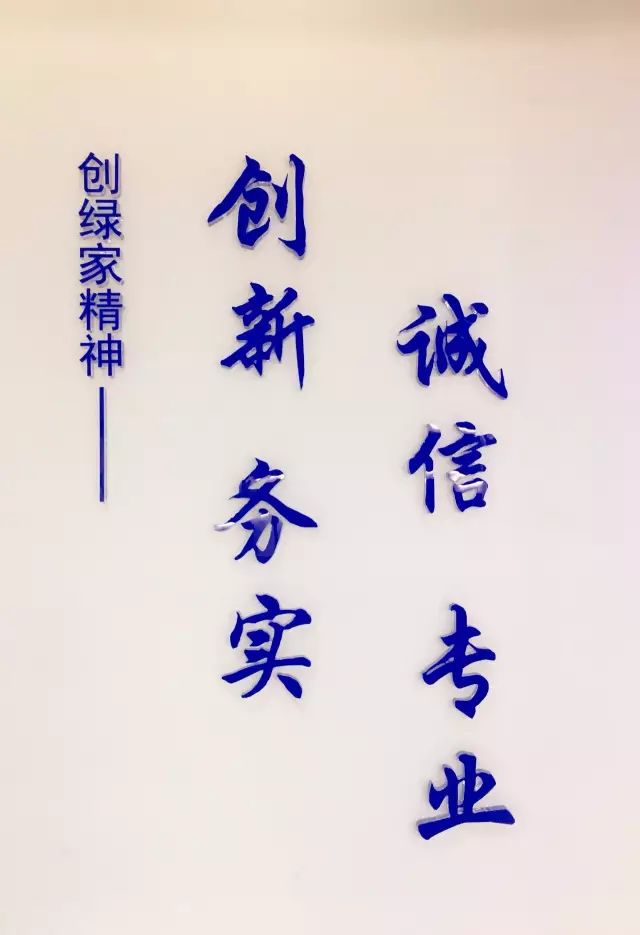 创绿家精神——
创新 务实
诚信 专业